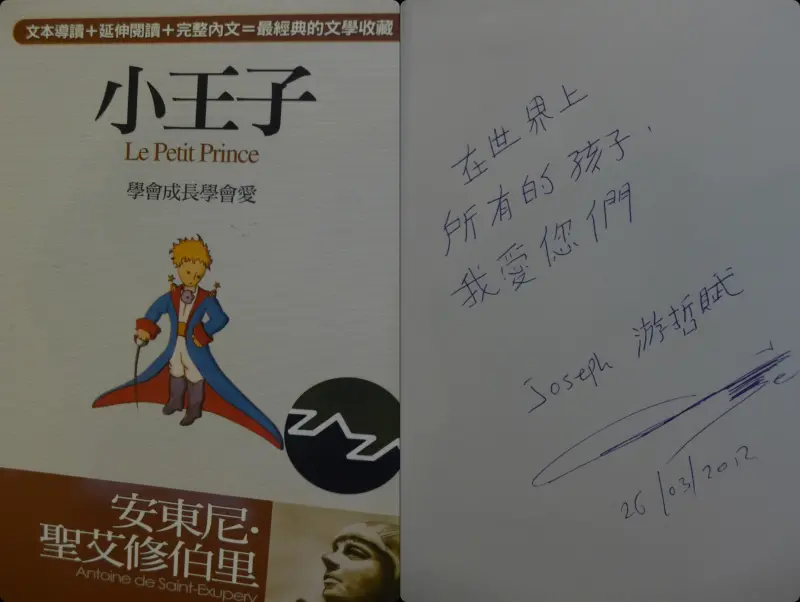 文本導讀＋延伸閱讀＋完整內文＝最經典的文學收藏
小王子
Le Petit Prince
學會成長學會愛
安東尼·
聖艾修伯里
Antoine de Saint-Exupery
在世界上
所有的孩子,
我愛您們
Joseph 游哲賦
26/03/2012